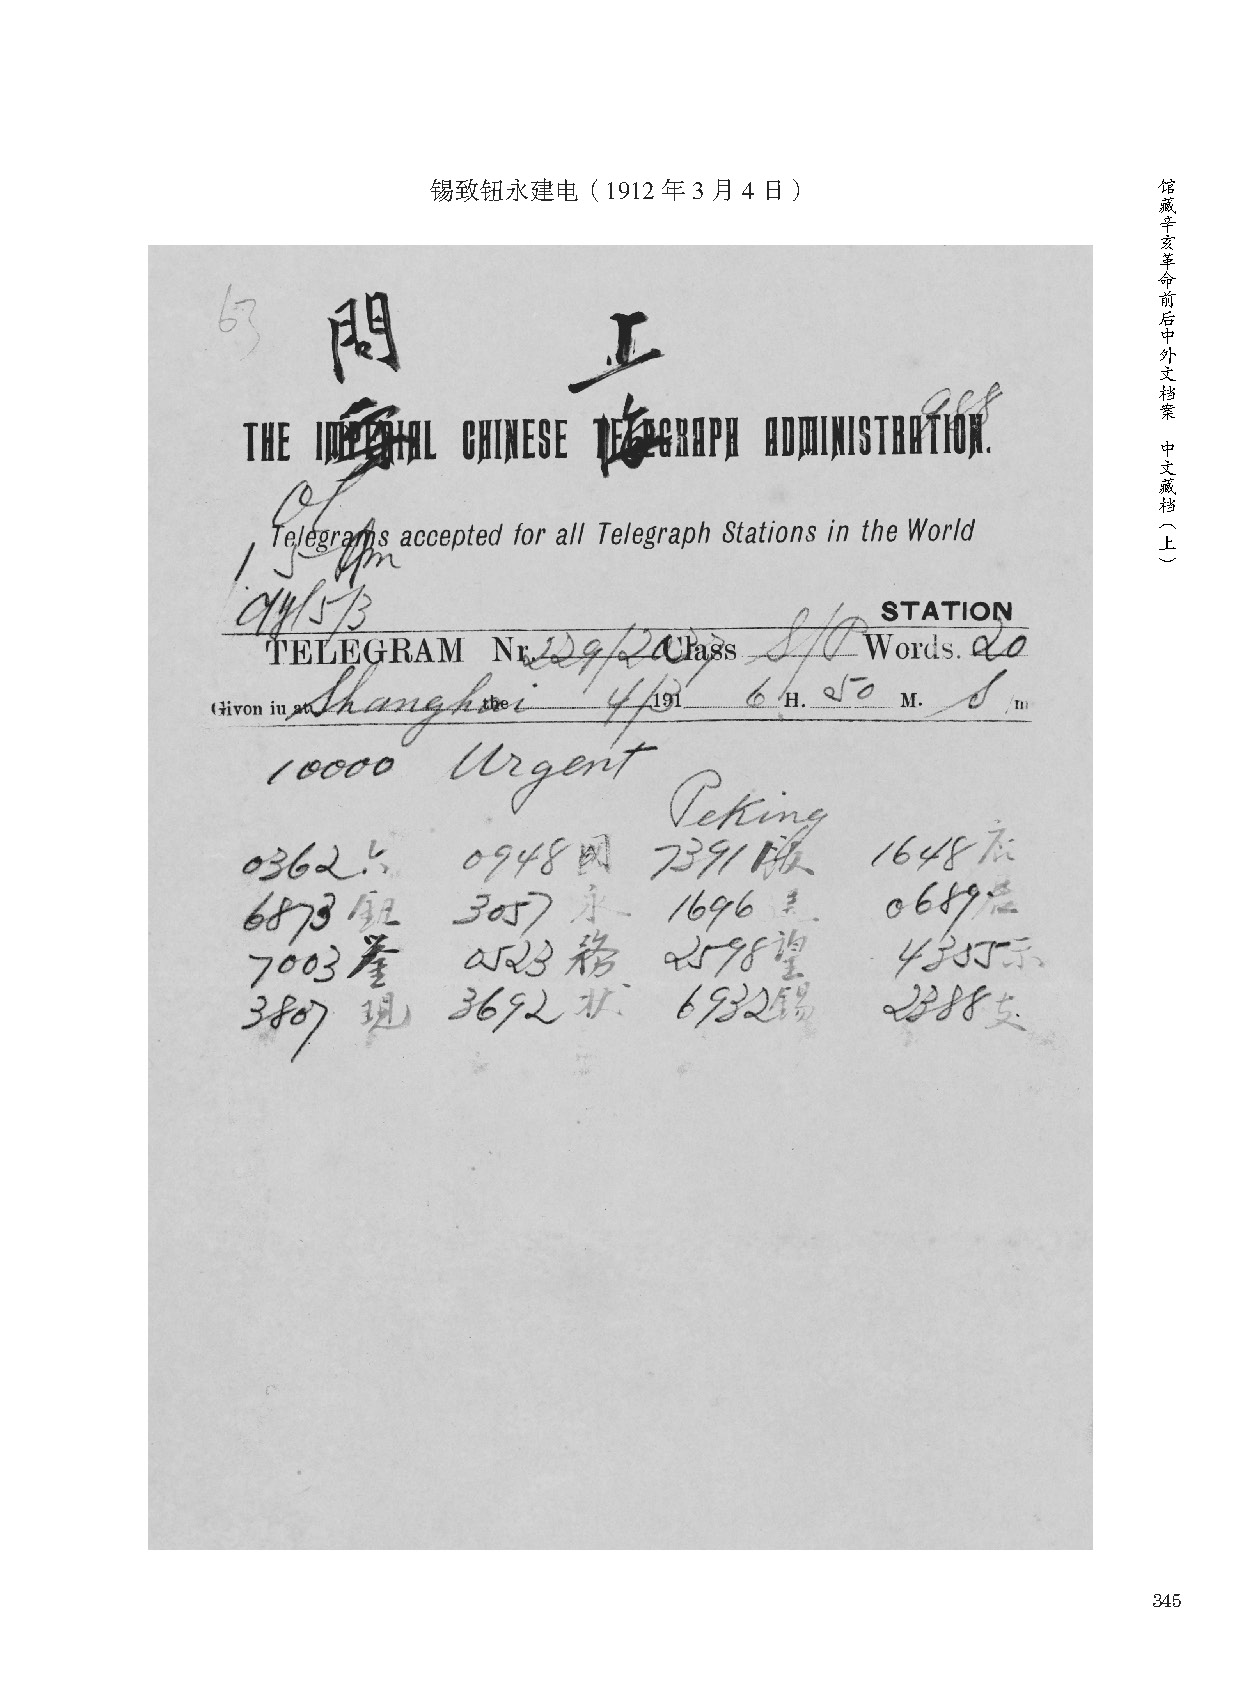 锡致钮永建电（1912 年 3 月 4 日）
馆藏辛亥革命前后中外文档案 中文藏档（上）
63
問 上
海
988
THE IMPERIAL CHINESE TELEGRAPH ADMINISTRATION.
Telegrams accepted for all Telegraph Stations in the World
1 5 pm
5/3
STATION
TELEGRAM Nr. 229/2037 Class S/P Words. 20
Given in at Shanghai the 4/3 191 6 H. 50 M. S /m
10000 Urgent
Peking
0362 六 0948 國 7391 飯 1648 店
6873 鈕 3057 永 1696 建 0689
7003 鑒 0523 務 2598 望 4355 示
3807 現 3692 状 6932 錫 2388 支
345